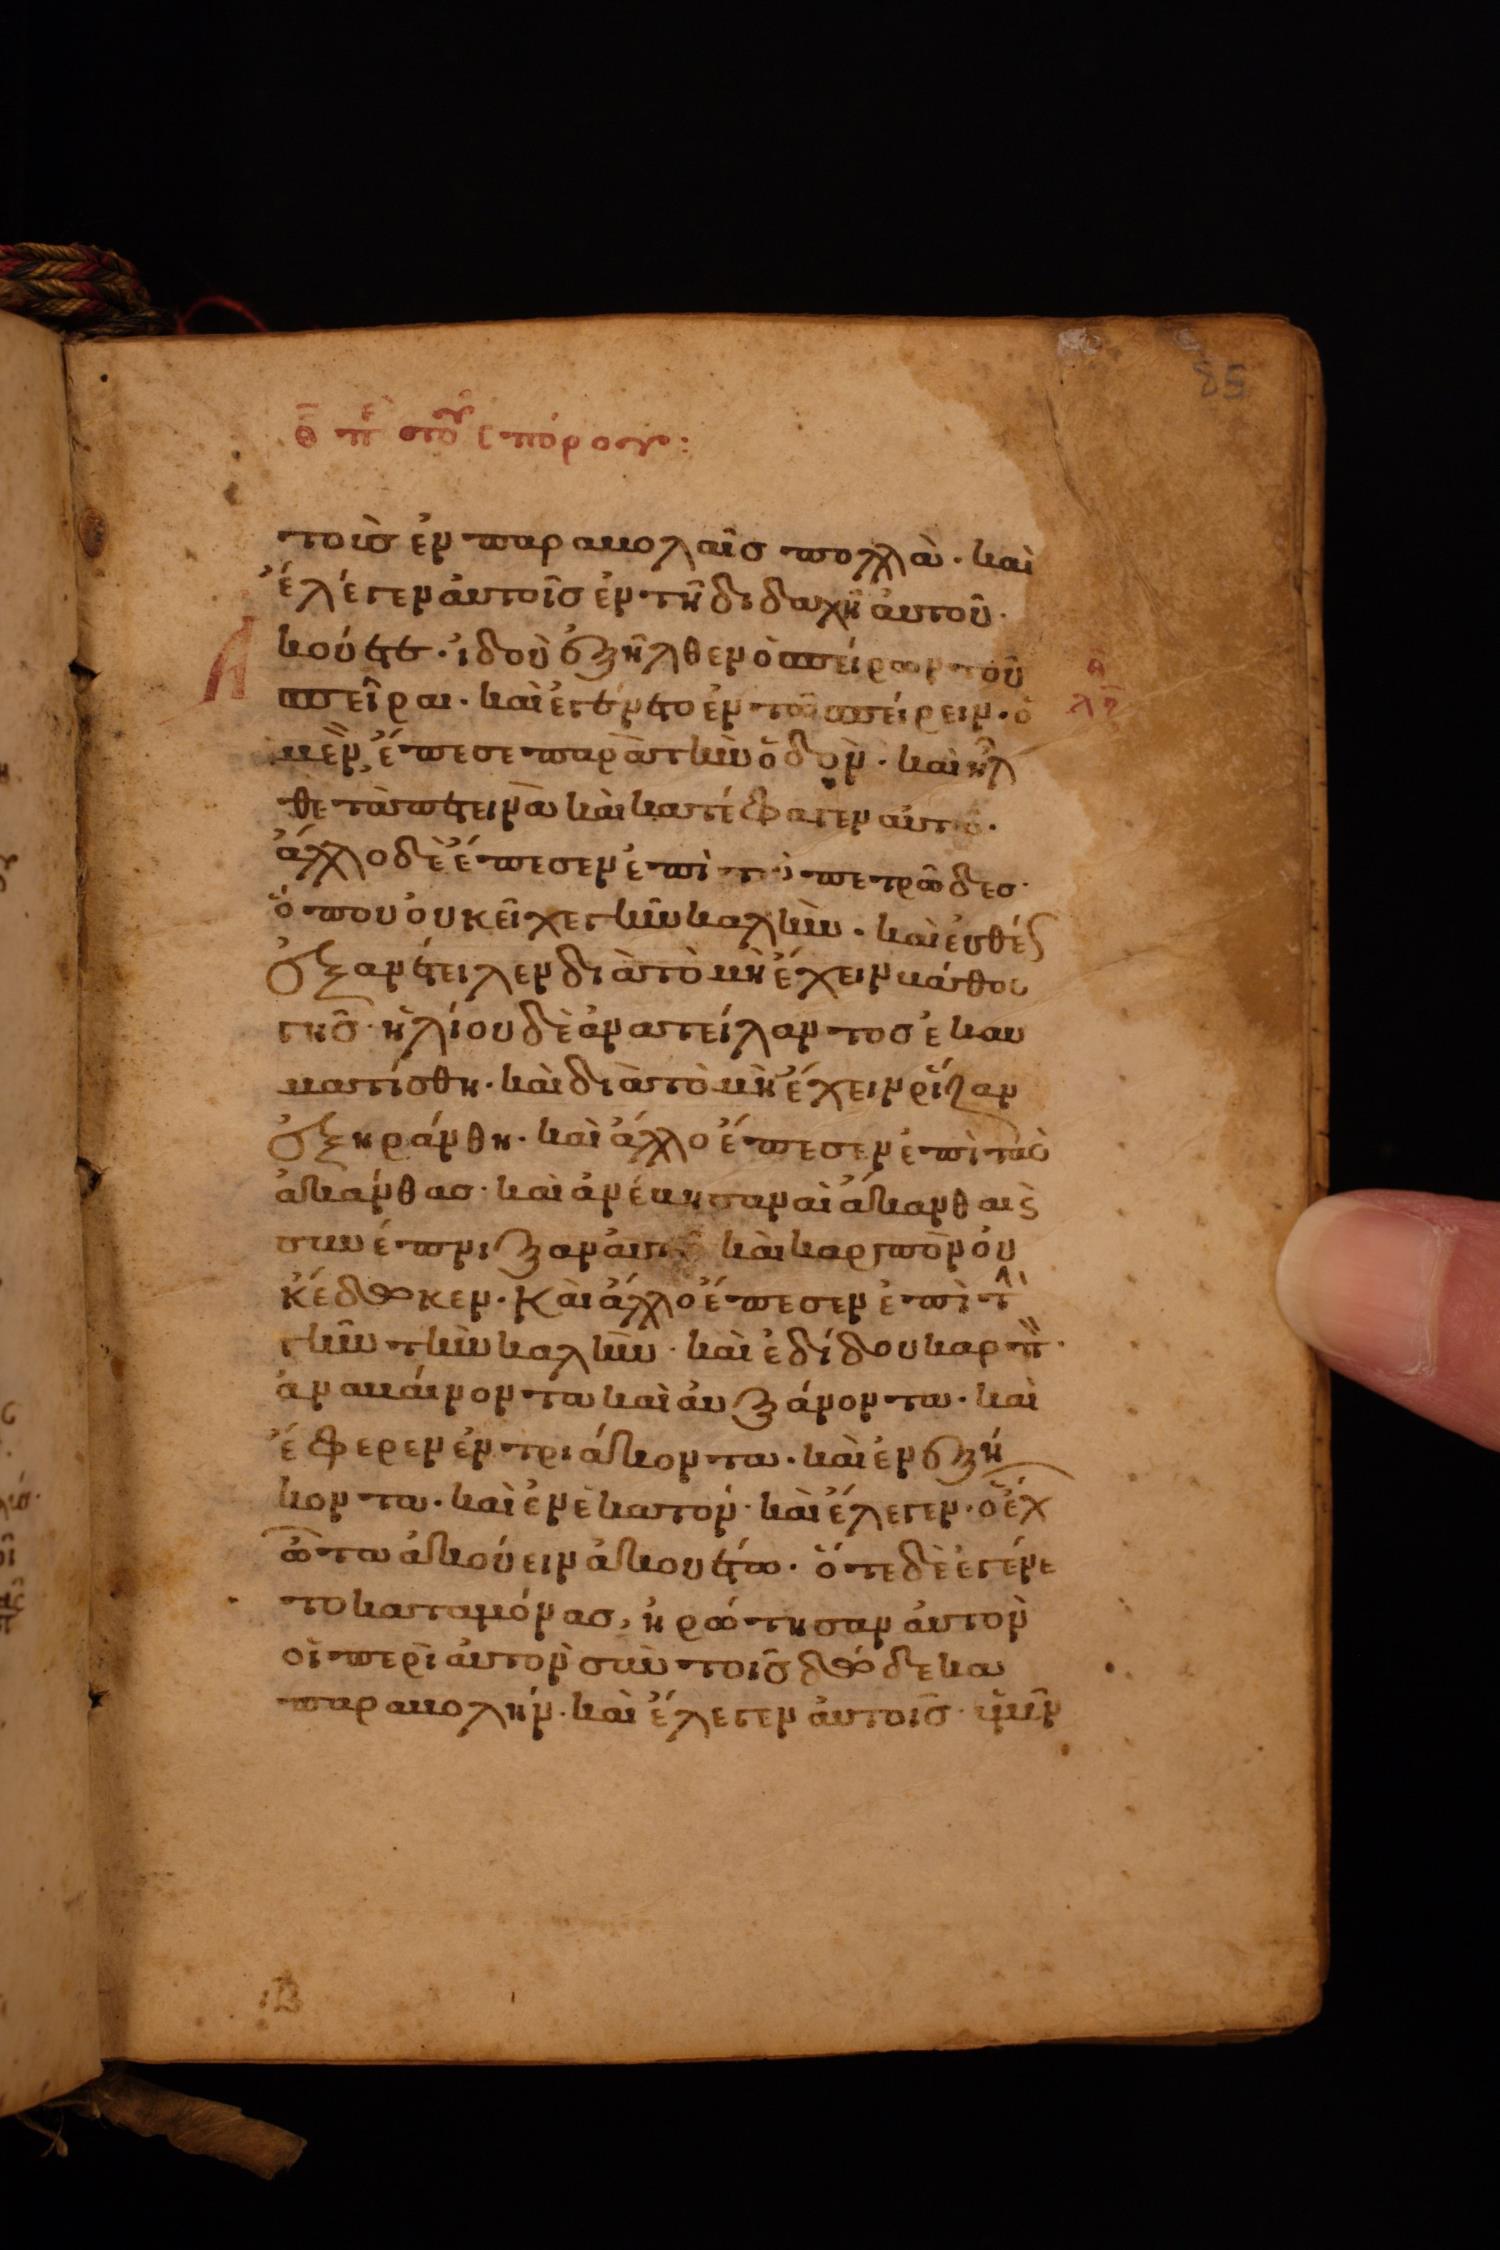 θ̄ πε τοῦ σπόρου:
τοῖς ἐν παραβολαῖς πολλὰ· καὶ
ἔλεγεν αὐτοῖς ἐν τῆ διδαχῆ αὐτοῦ·
Ἀ
κούετε· ἰδοὺ ἐξῆλθεν ὁ σπείρων τοῦ
σπεῖραι· καὶ ἐγένετο ἐν τῶ σπείρειν· ὁ
μὲν ἔπεσε παρὰ τὴν ὁδὸν· καὶ ἦλ
θε τὰ πετεινὰ καὶ κατέφαγεν αὐτό·
ἄλλο δὲ ἔπεσεν ἐπὶ τὸ πετρῶδες·
ὅπου οὐκ εἶχε γῆν πολλὴν· καὶ εὐθέως
ἐξανέτειλεν διὰ τὸ μὴ ἔχειν βάθος
γῆς· ἡλίου δὲ ἀνατείλαντος ἐκαυ
ματίσθη· καὶ διὰ τὸ μὴ ἔχειν ῥίζαν
ἐξηράνθη· καὶ ἄλλο ἔπεσεν ἐπὶ τὰς
ἀκάνθας· καὶ ἀνέβησαν αἱ ἄκανθαι ς
συνέπνιξαν αὐτὸ καὶ καρπὸν οὐ
κ ἔδωκεν· Καὶ ἄλλο ἔπεσεν ἐπὶ τὴν
γῆν τὴν καλὴν· καὶ ἐδίδου καρπὸν·
ἀναβαίνοντα καὶ αὐξάνοντα· καὶ
ἔφερεν ἐν τριάκοντα· καὶ ἐν ἑξή
κοντα· καὶ ἐν ἑκατόν· καὶ ἔλεγεν· ὁ ἔχων
ὦτα ἀκούειν ἀκουέτω· ὅτε δὲ ἐγένε
το καταμόνας, ἠρώτησαν αὐτὸν
οἱ περὶ αὐτὸν σὺν τοῖς δώδεκα
παραβολήν· καὶ ἔλεγεν αὐτοῖς· ὑμῖν